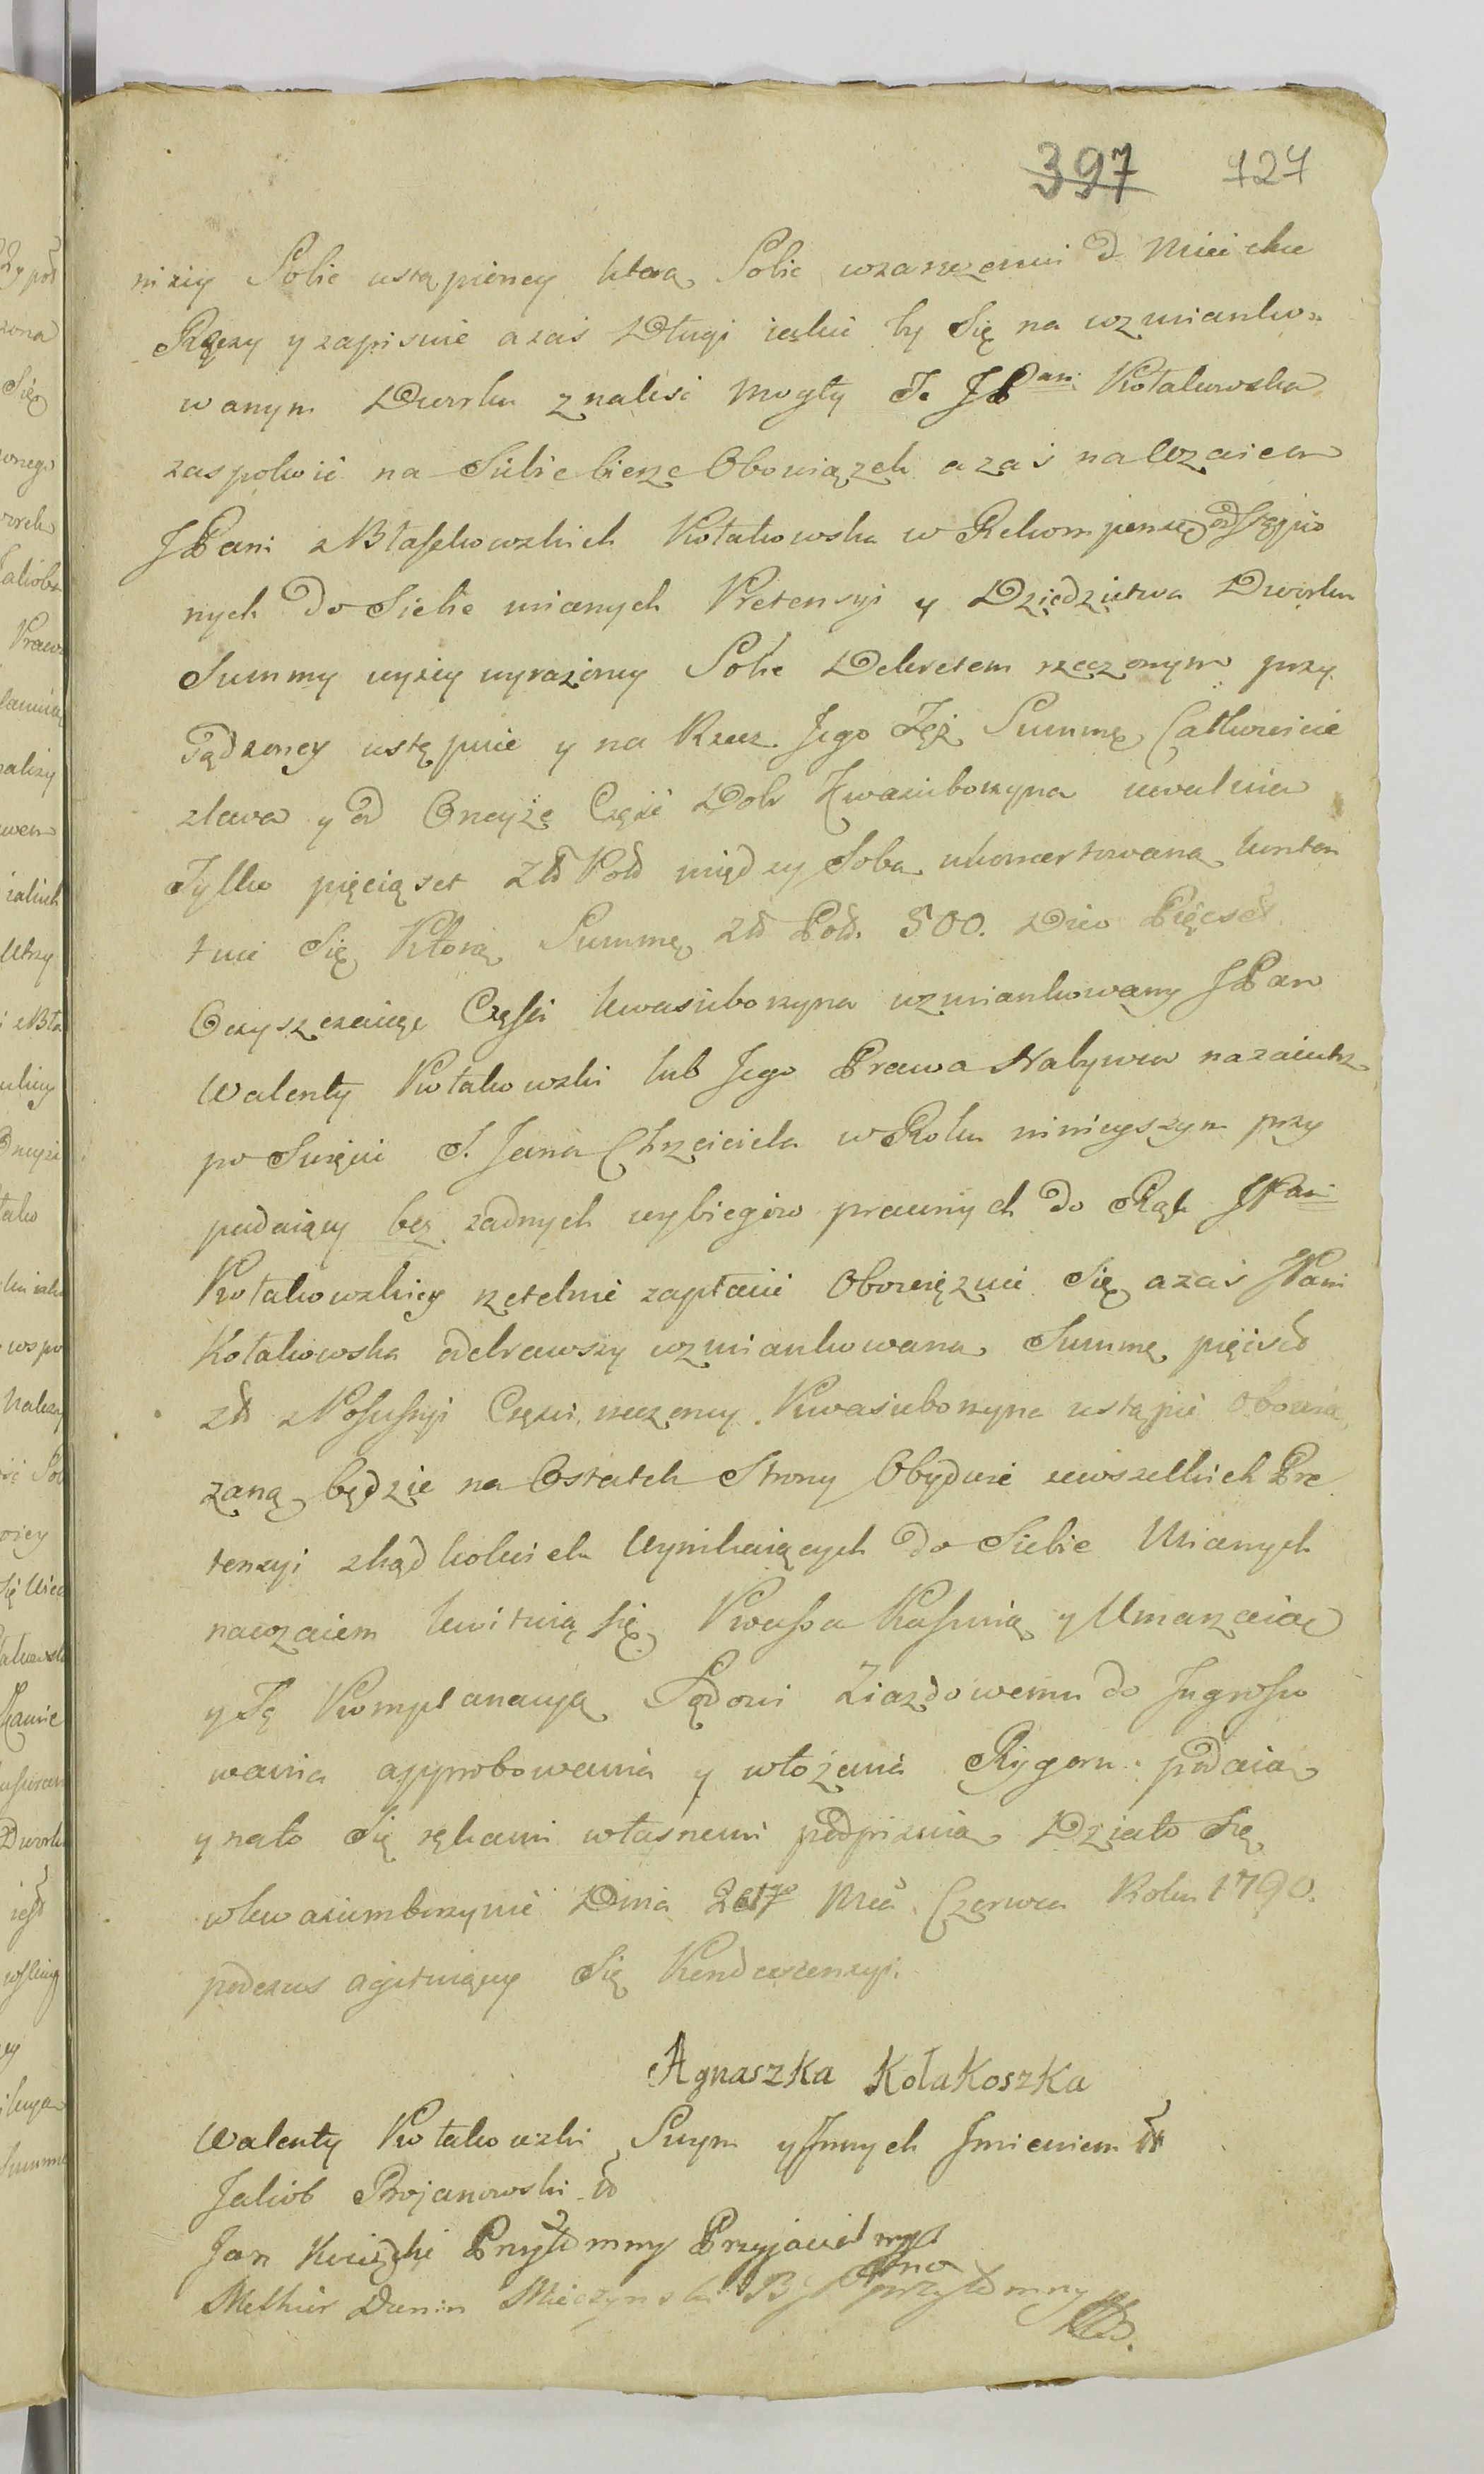 397 727
niżey Sobie ustąpioney ktora Sobie
Ręczy y zapisuie azaś Długi iakie by Się na wzmianko=
wanym Dworku znalesc mogły T. JPani Kołakowska
zaspokoić na Siebie bierze Obowiązek azaś nawzaiem
JPani z Błaszkowskich Kołakowska w Rekompensę odstąpio
nych do Siebie mianych Pretensyi y Dziedzictwa Dworku
Summy wyżey wyrażoney Sobie Dekretem rzeczonym przy
sądzoney ustępuie y na Rzecz Jego Tęż Summę Całkowicie
zlewa y od Oneyże Część Dobr Kwasieborzyna uwalnia
Tylko pięciąset Zł Pol między Sobą ukoncertowaną konten
tuie Się Ktorą Summę Zł Pol. 500. Dico Pięcset
Oczyszczaiąc Części Kwasieborzyna wzmiankowany JPan
Walenty Kołakowski lub Jego Prawa Nabywca nazaiutrz
po Swięcie S. Jana Chrzciciela w Roku ninieyszym przy
padaiący bez żadnych wybiegow prawnych do Rąk JPani
Kołakowskiey rzetelnie zapłacić Obowięzuie Się azaś JPani
Kołakowska odebrawszy wzmiankowaną Summę pięcset
zł z Possessyi Części rzeczoney Kwasieborzyna ustąpić Obowią
zaną będzie na Ostatek Strony Obydwie zewszelkich Pre
tensyi zkądkolwiek Wynikaiących do Siebie Mianych
nawzaiem kwituią się Kassuią y Umarzaią
y Tę Komplanacyą Sądowi Ziazdowemu do Ingrosso
wania approbowania y włożenia Rygoru podaia
y nato Się rękami własnemi podpisuią Działo Się
w Kwasiemborzynie Dnia Mca Czerwca Roku 1790.
podczas agituiącey Się Kondescensyi.
Agnaszka Kołakoszka
Walenty Kołakowski Swym y Innych Imieniem
Jakób Bojanowski
Jan Przytomny Przyjaciel
Melhior Dunin Przytomny